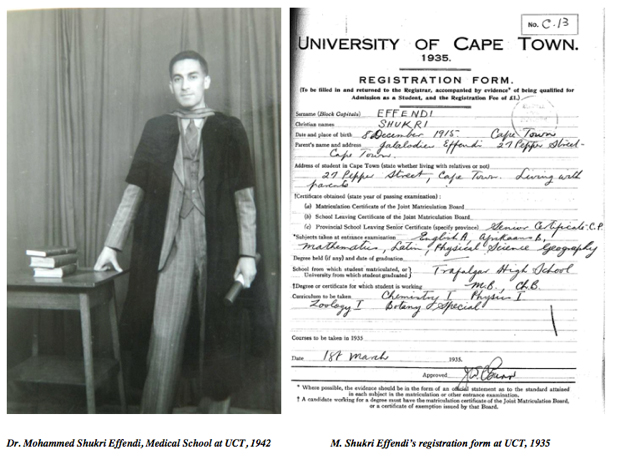 No. C.13
UNIVERSITY OF CAPE TOWN.
1935.
REGISTRATION FORM.
(To be filled in and returned to the Registrar, accompanied by evidence* of being qualified for
Admission as a Student, and the Registration Fee of £1.)
Surname (Block Capitals) EFFENDI
Christian names SHUKRI
Date and place of birth 8 December 1915. Cape Town
Parent's name and address Jalalodien Effendi 27 Pepper Street
Cape Town.
Address of student in Cape Town (state whether living with relatives or not)
27 Pepper Street, Cape Town. Living with
parents
†Certificate obtained (state year of passing examination):
(a) Matriculation Certificate of the Joint Matriculation Board
(b) School Leaving Certificate of the Joint Matriculation Board
(c) Provincial School Leaving Senior Certificate (specify province) Senior Certificate C.P.
*Subjects taken at entrance examination English A, Afrikaans
Mathematics, Latin, Physical Science Geography
Degree held (if any) and date of graduation
School from which student matriculated, or
University from which student graduated Trafalgar High School
†Degree or certificate for which student is working M.B., Ch.B.
Curriculum to be taken Chemistry I Physics I
Zoology I Botany Special
Courses to be taken in 1935
Date 1st March 1935.
Approved
* Where possible, the evidence should be in the form of an official statement as to the standard attained
in each subject in the matriculation or other entrance examination.
† A candidate working for a degree must have the matriculation certificate of the Joint Matriculation Board,
or a certificate of exemption issued by that Board.
Dr. Mohammed Shukri Effendi, Medical School at UCT, 1942
M. Shukri Effendi's registration form at UCT, 1935